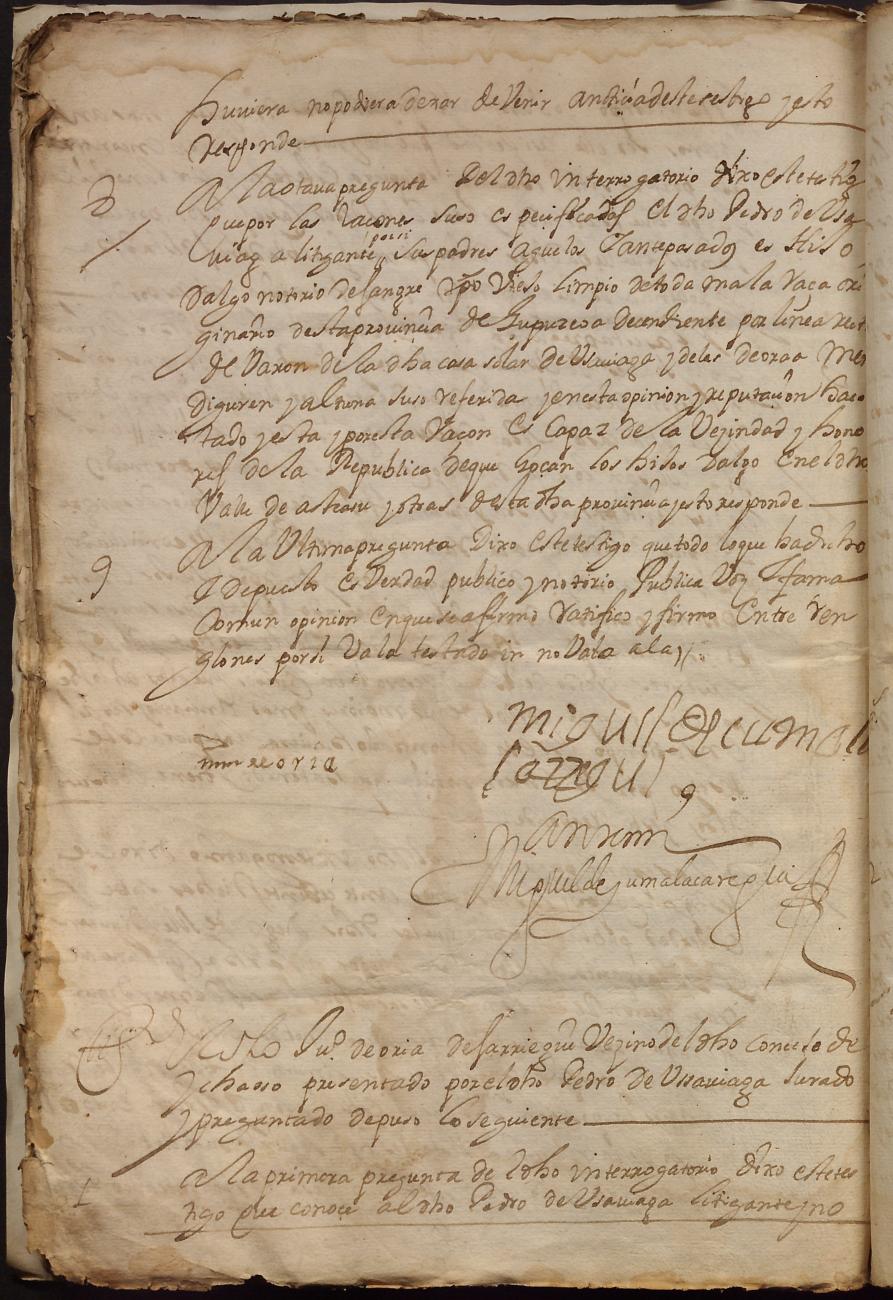 huviera no podiera dexar de Venir a noticia deste testigo y esto
responde
8 A la otava pregunta del dho interrogatorio dixo este testigo
que por las raçones suso espeçificadas el dho Pedro de Usa
uiaga litigante por si sus padres aguelos y antepasados es Hijo
dalgo notorio de sangre xpo viejo limpio de toda mala raça ori
ginario desta provinçia de Guipuzcoa decendiente por linea reta
de Varon de la dha casa solar de Usauiaga y de las de oraa Men
diguren y altuna suso referida y en esta opinion y reputaçion ha es
tado y esta y por esta Raçon es Capaz de la Vezindad y hono
res de la Republica de que goçan los hijos dalgo en el dho
Valle de asteasu y otras desta dha provinçia y esto responde
9 A la Ultima pregunta Dixo este testigo que todo lo que ha dicho
y depuesto es Verdad publico y notorio Publica Voz y fama
Comun opinion en que se afirmo ratifico y firmo Entre Ren
glones por si Vala testado in no Vala ala
miguel de cumala
carregui
mn de oria
Ante mi
Miguel de Cumalacaregui
Tesº Juº de oria de sarriegui Vezino del dho conçejo de
ychasso presentado por el dho Pedro de Ussauiaga Jurado
y preguntado depuso lo seguiente
1 A la primera pregunta del dho interrogatorio dixo este tes
tigo que conoçe al dho Pedro de Usauiaga litigante y no